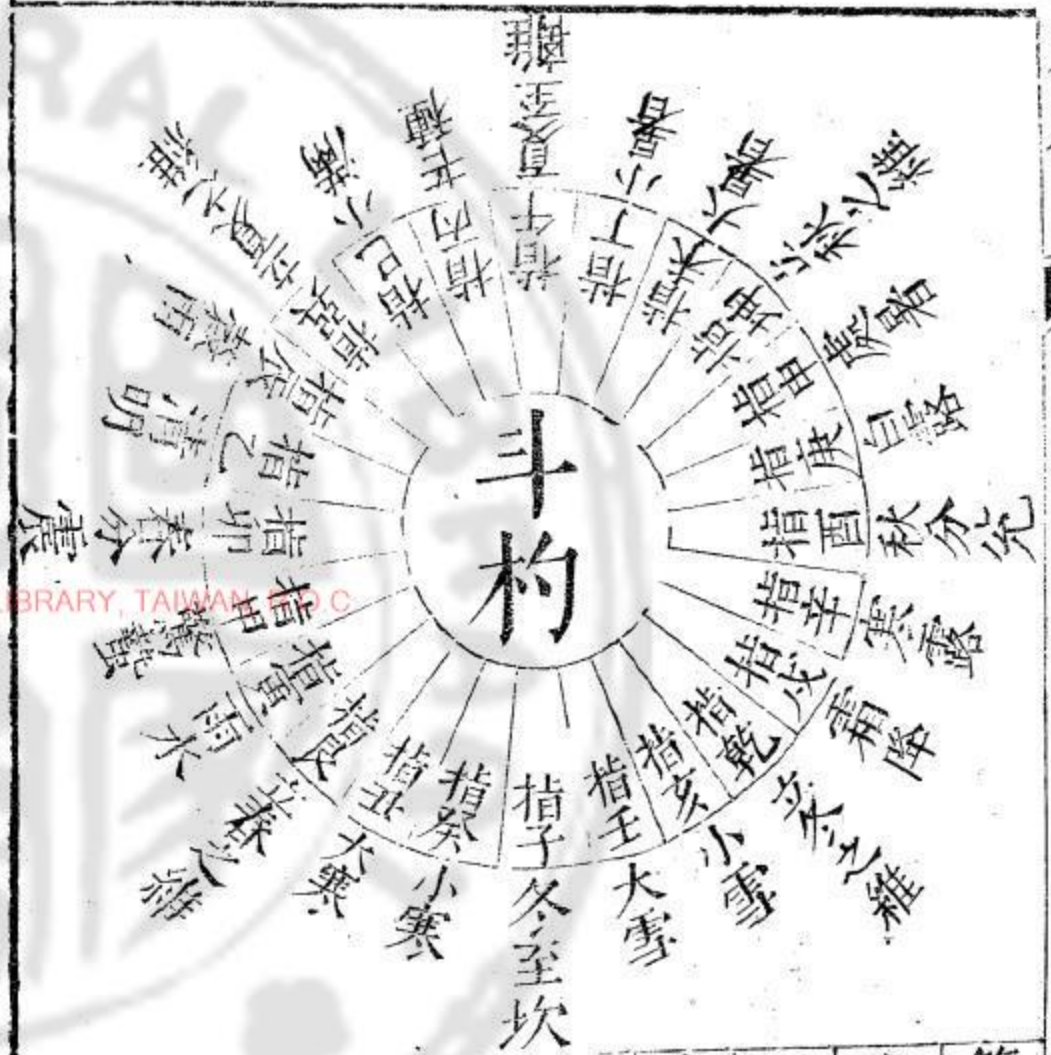 斗杓
指子冬至坎
指癸小寒
指丑大寒
指艮立春之維
指寅雨水
指甲驚蟄
指卯春分震
指乙清明
指辰穀雨
指巽立夏之維
指巳小滿
指丙芒種
指午夏至離
指丁小暑
指未大暑
指坤立秋之維
指申處暑
指庚白露
指酉秋分兌
指辛寒露
指戌霜降
指乾立冬之維
指亥小雪
指壬大雪
IBRARY, TAIWAN, R.O.C